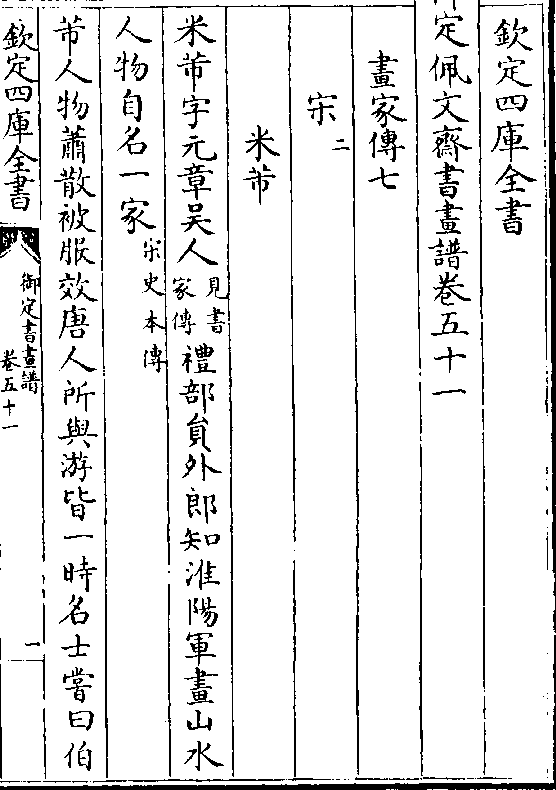 欽定四庫全書
定佩文齋書畫譜卷五十一
畫家傳七
宋二
米芾
米芾字元章吴人見書家傳禮部員外郎知淮陽軍畫山水
人物自名一家宋史本傳
芾人物蕭散被服效唐人所與游皆一時名士嘗曰伯
欽定四庫全書
御定書畫譜
卷五十一
一